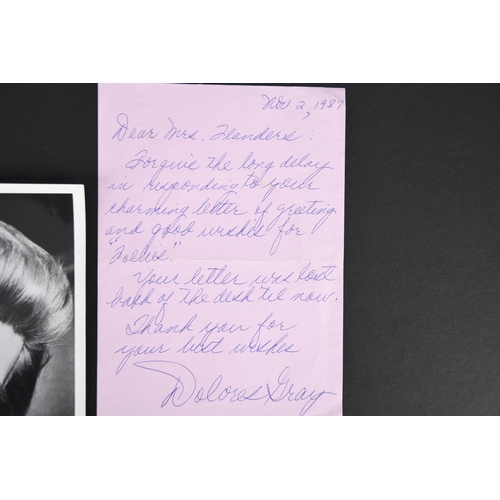 Nov 2, 1987
Dear Mrs. Flanders:
Forgive the long delay
in responding to your
charming letter of greeting
and good wishes for
"Follies."
Your letter was lost
back of the desk til now.
Thank you for
your best wishes
Dolores Gray